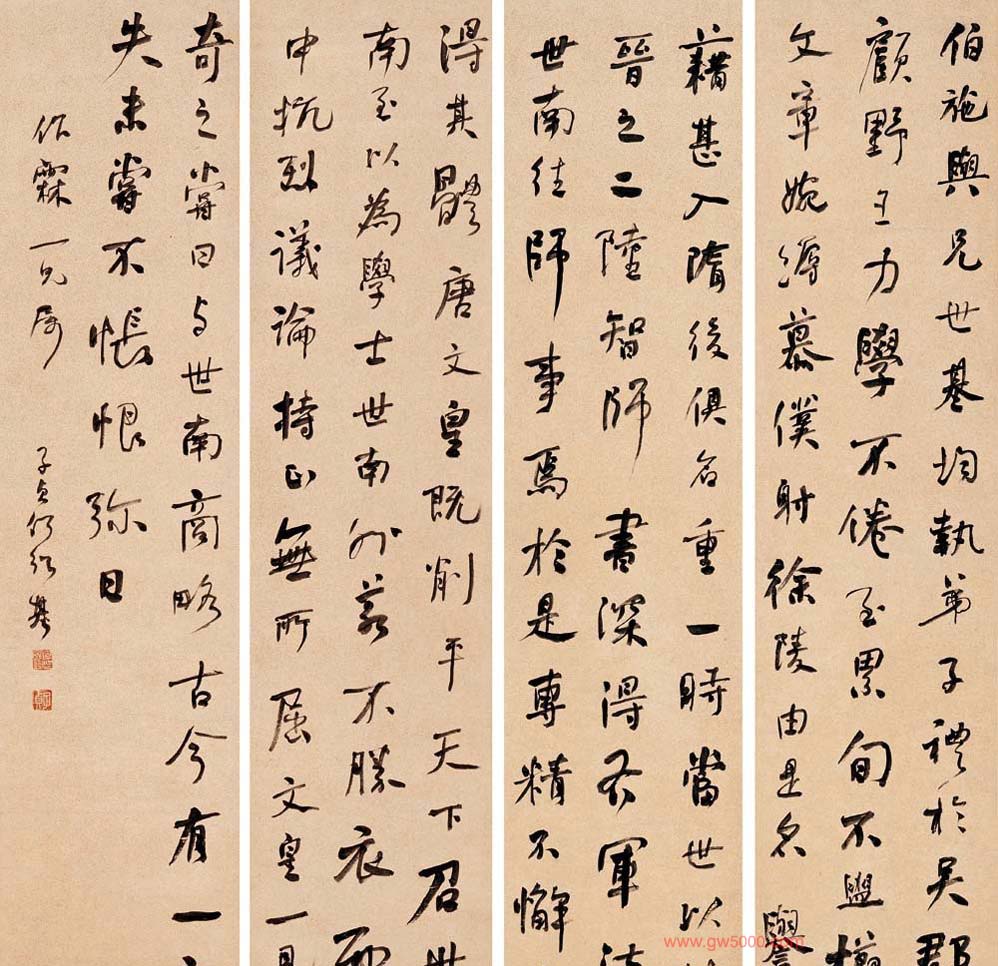 伯施與兄世基均執弟子禮於吳郡
顧野王力學不倦至累旬不盥櫛
文章婉縟慕僕射徐陵由是名譽
藉甚入隋後俱名重一時當世以
晉之二陸智師書深得右軍法
世南往師事焉於是專精不懈
得其體唐文皇既削平天下召世
南至以為學士世南外若不勝衣而
中抗烈議論持正無所屈文皇一見
奇之嘗曰與世南商略古今有一
失未嘗不悵恨弥日
一兄屬
子貞何紹基
www.gw5000.com